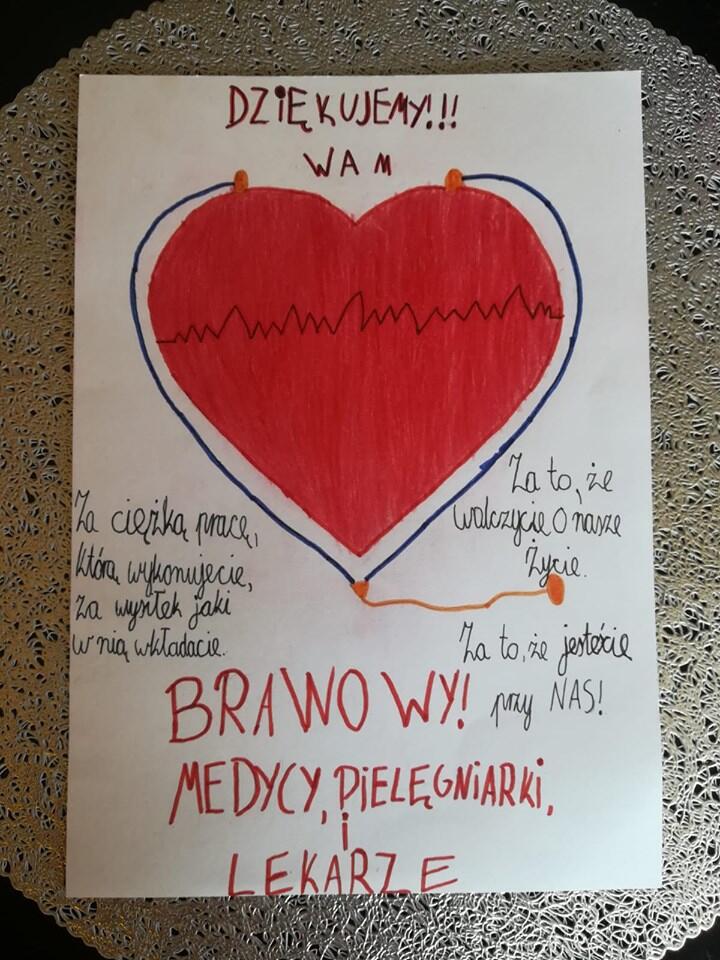 DZIĘKUJEMY!!!
WAM
Za ciężką pracę,
którą wykonujecie,
za wysiłek jaki
w nią wkładacie.
Za to, że
walczycie O nasze
Życie.
Za to, że jesteście
przy NAS!
BRAWO WY!
MEDYCY, PIELĘGNIARKI,
i
LEKARZE